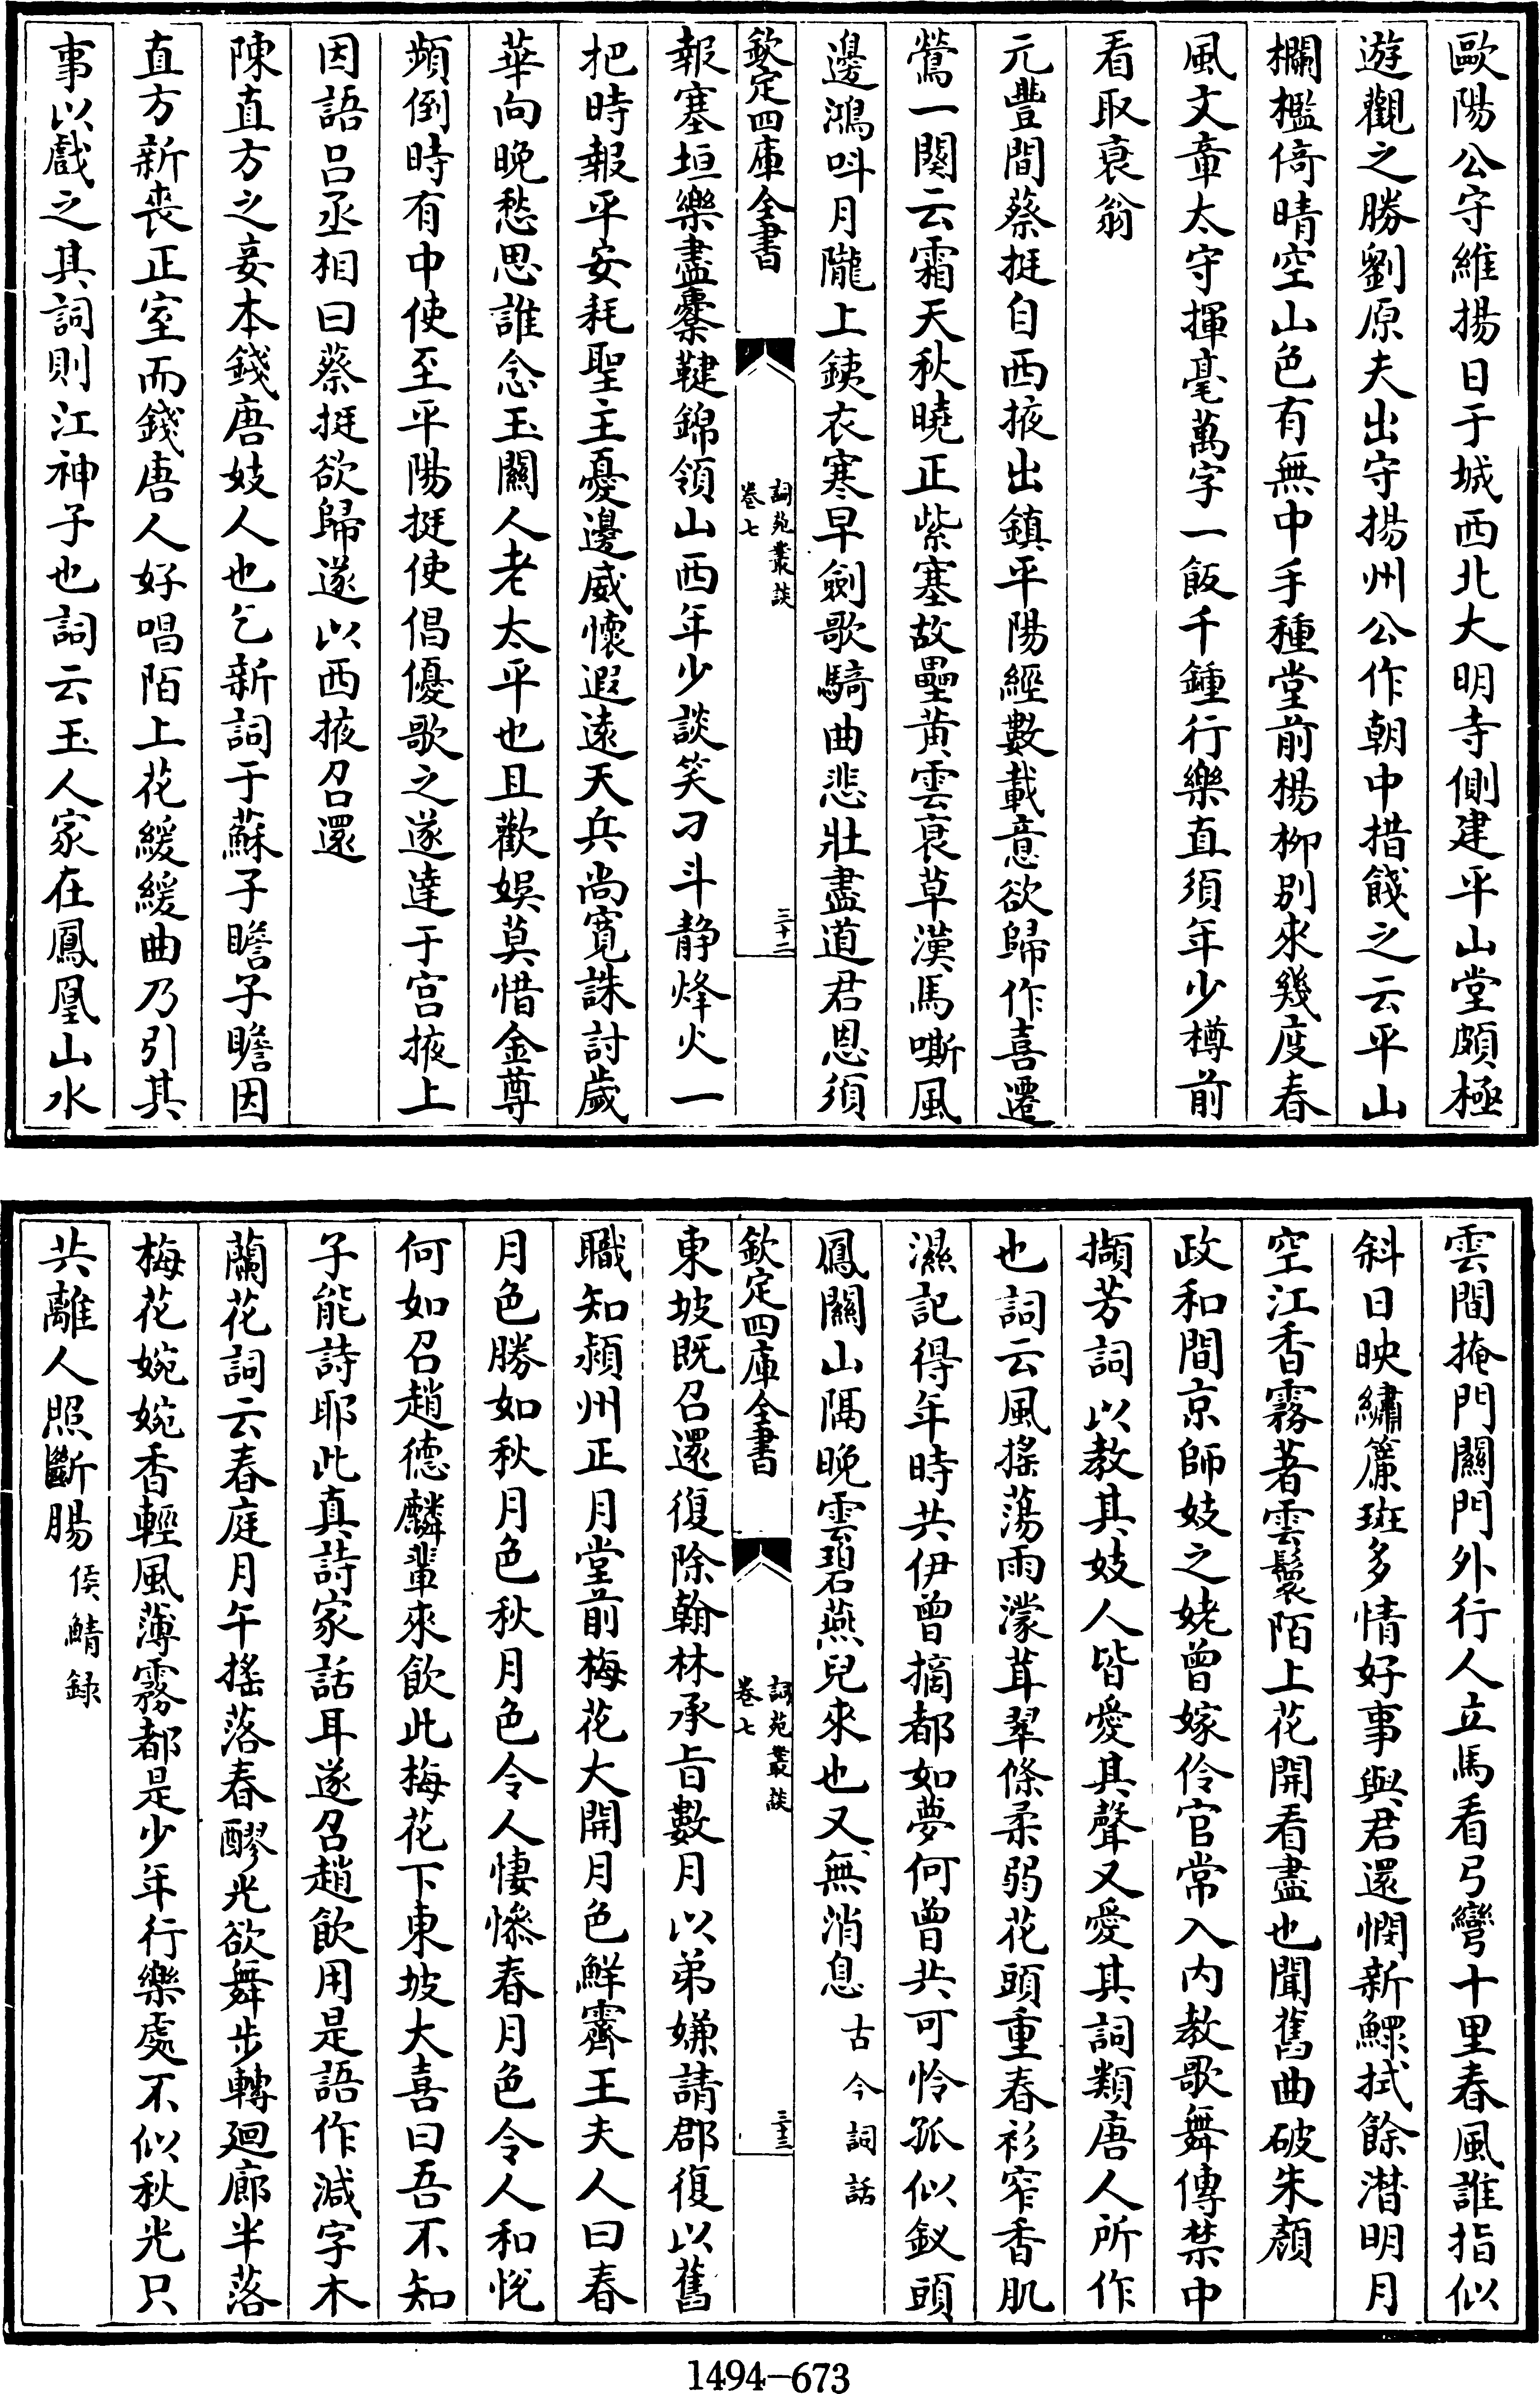 歐陽公守維揚日于城西北大明寺側建平山堂頗極
遊觀之勝劉原夫出守揚州公作朝中措餞之云平山
欄檻倚晴空山色有無中手種堂前楊柳別來幾度春
風文章太守揮毫萬字一飯千鍾行樂直須年少樽前
看取衰翁
元豐間蔡挺自西掖出鎮平陽經數載意欲歸作喜遷
鶯一闋云霜天秋曉正紫塞故壘黃雲衰草漢馬嘶風
邊鴻呌月隴上鐵衣寒早劍歌騎曲悲壯盡道君恩須
欽定四庫全書
詞苑叢談
卷七
三十二
報塞垣樂盡櫜鞬錦領山西年少談笑刁斗静烽火一
把時報平安耗聖主憂邊威懷遐逺天兵尚寛誅討歲
華向晚愁思誰念玉關人老太平也且歡娛莫惜金尊
頻倒時有中使至平陽挺使倡優歌之遂達于宫掖上
因語吕丞相曰蔡挺欲歸遂以西掖召還
陳直方之妾本錢唐妓人也乞新詞于蘇子瞻子瞻因
直方新喪正室而錢唐人好唱陌上花緩緩曲乃引其
事以戲之其詞則江神子也詞云玉人家在鳳凰山水
雲間掩門關門外行人立馬看弓彎十里春風誰指似
斜日映繡簾班多情好事與君還憫新鰥拭餘潸明月
空江香霧著雲鬟陌上花開看盡也聞舊曲破朱顔
政和間京師妓之姥曾嫁伶官常入内教歌舞傳禁中
擷芳詞以教其妓人皆愛其聲又愛其詞類唐人所作
也詞云風搖蕩雨濛茸翠條柔弱花頭重春衫窄香肌
濕記得年時共伊曾摘都如夢何曾共可怜孤似釵頭
鳳關山隔晚雲碧燕兒來也又無消息 古今詞話
欽定四庫全書
詞苑叢談
卷七
三十三
東坡既召還復除翰林承旨數月以弟嫌請郡復以舊
職知潁州正月堂前梅花大開月色鮮霽王夫人曰春
月色勝如秋月色秋月色令人悽慘春月色令人和悅
何如召趙德麟輩來飲此梅花下東坡大喜曰吾不知
子能詩耶此真詩家話耳遂召趙飲用是語作減字木
蘭花詞云春庭月午搖落春醪光欲舞步轉迴廊半落
梅花婉婉香輕風薄霧都是少年行樂處不似秋光只
共離人照斷腸 侯鯖録
1494-673